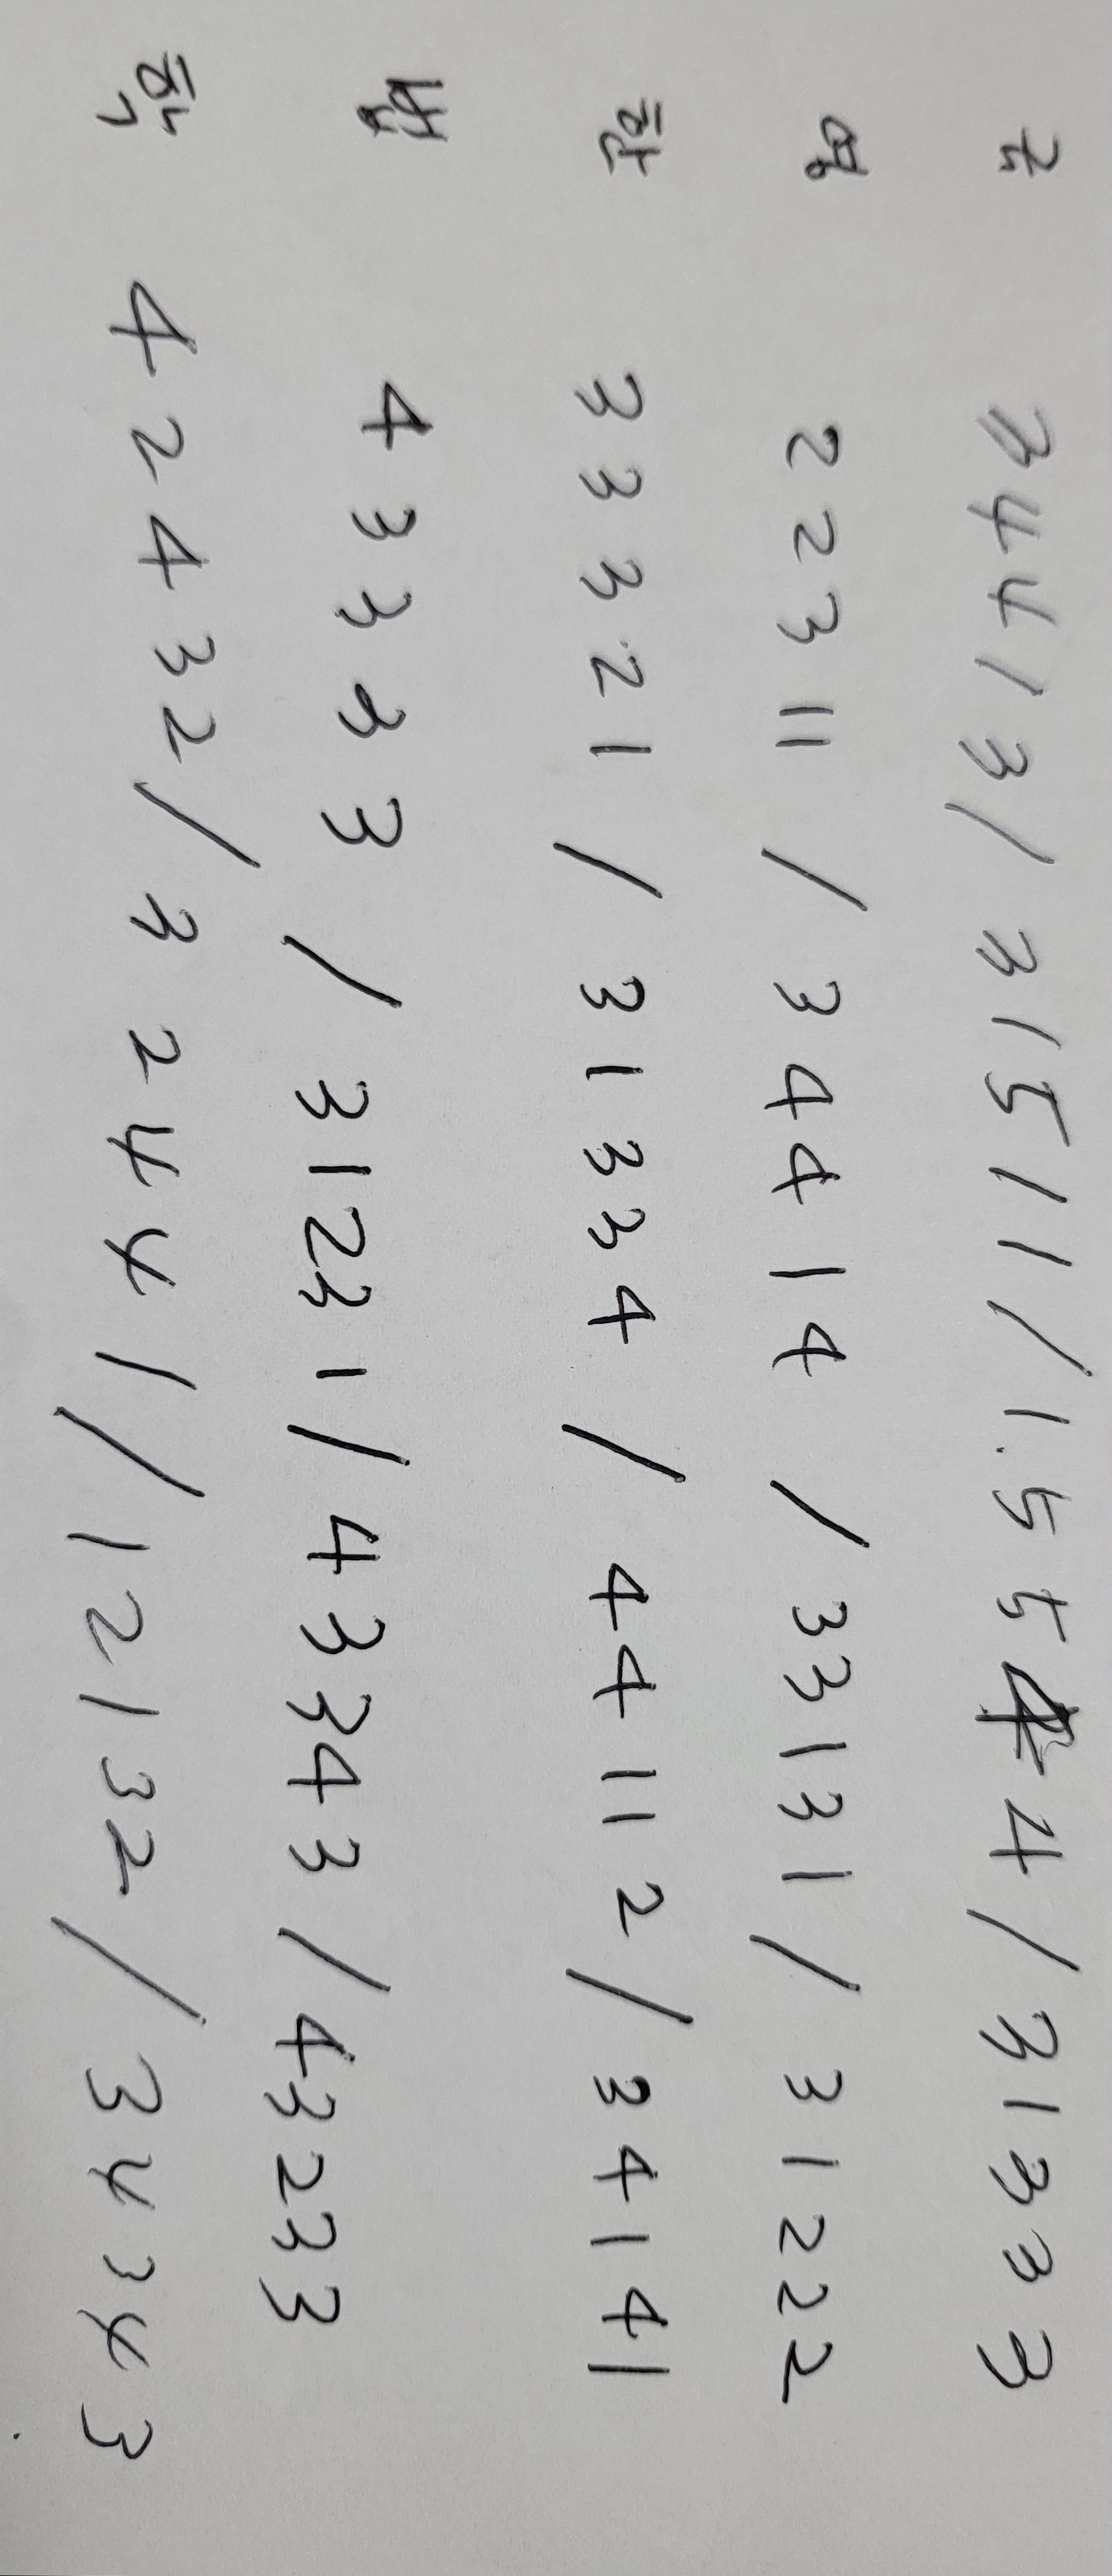 국 34413/31511/1.5544/31333
영 22311/34414/33131/31222
한 33321/31334/44112/34141
법 43333/31231/43343/43233
학 42432/32441/12132/34343